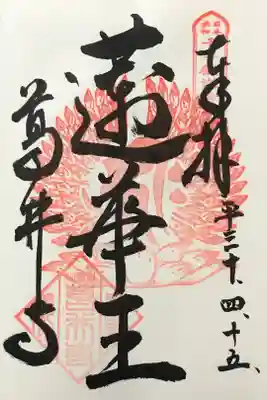 奉拝
平三十、四、十五、
蓮華王
葛井寺